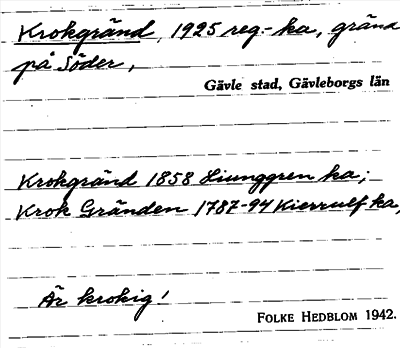 Krokgränd, 1925 reg.-ka, gränd
på Söder,
Gävle stad, Gävleborgs län
Krokgränd 1858 Ljunggren ka;
Krok Gränden 1787-94 Kierrulf ka,
Är krokig!
FOLKE HEDBLOM 1942.